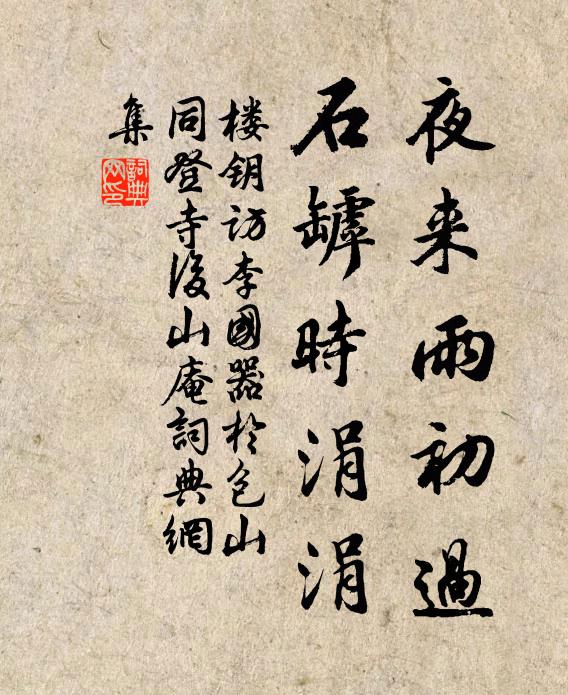 夜来雨初過
石罅時涓涓
楼钥访李國器於包山
同登寺後山庵詞典網
集
詞典网印